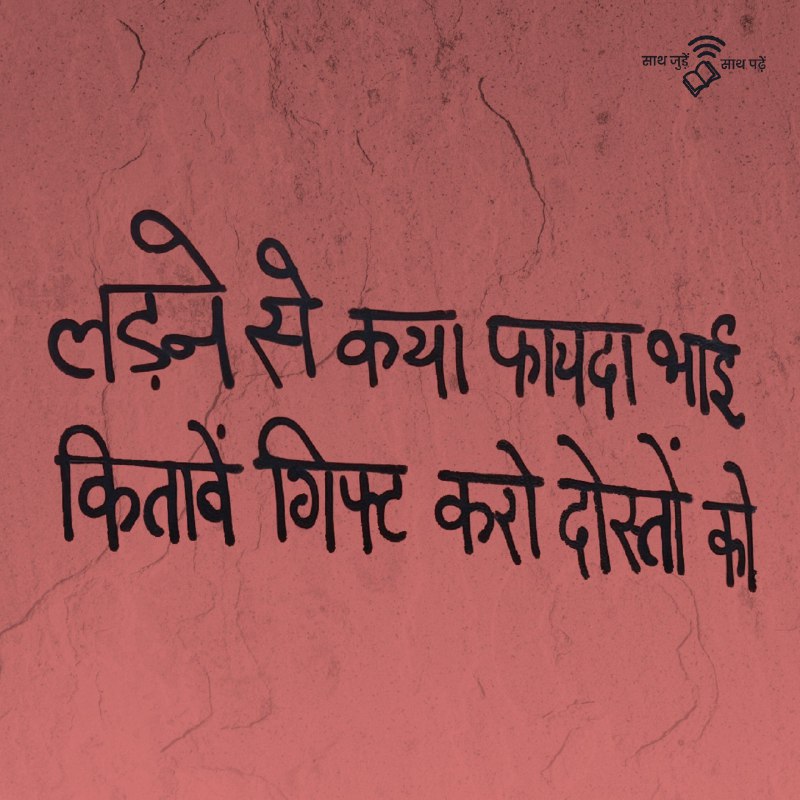 साथ जुड़ें साथ पढ़ें
लड़ने से कया फायदा भाई
कितावें गिफ्ट करो दोस्तों को